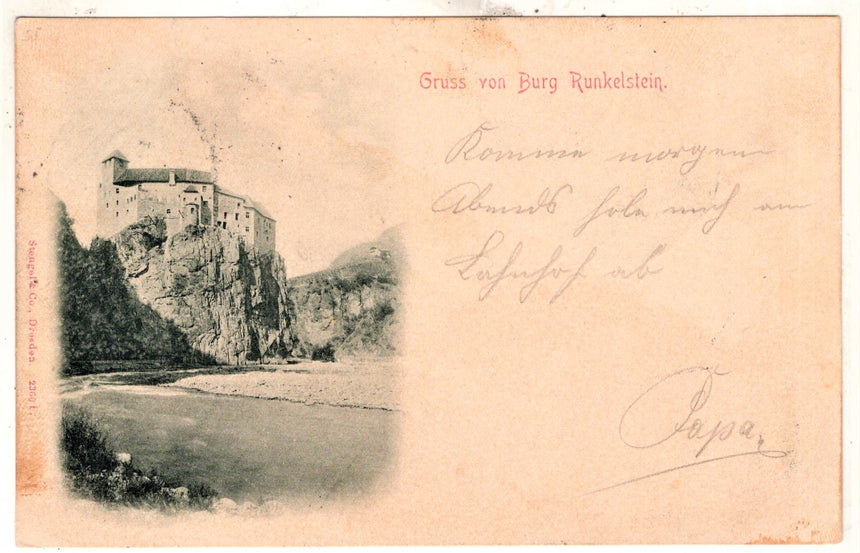 Gruss von Burg Runkelstein.
Komme morgen
Abends hole mich am
Bahnhof ab
Papa.
Stengel & Co., Dresden.